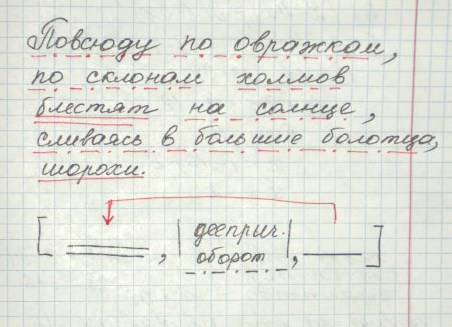 Повсюду по овражкам,
по склонам холмов
блестят на солнце,
сливаясь в большие болотца,
шорохи.
[ , |дееприч. оборот|, ]